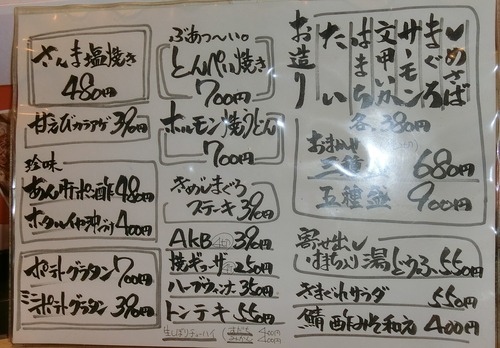 ♡めさば
まぐろ
サーモン
文甲いか
はまち
たい
お造り
各380円
おまかせ
三種 680円
五種盛 900円
寄せ出し♡
持ち入り湯どうふ 550円
きまぐれサラダ 550円
鯖酢みそ和え 400円
ぶあっ〜い。
とんぺい焼き
700円
ホルモン焼うどん
700円
きめじまぐろ
ステーキ 390円
AKB 390円
焼ギョーザ 250円
ハーブウィンナ 350円
トンテキ 550円
生しぼりチューハイ
400円
400円
さんま塩焼き
480円
甘えびカラアゲ 390円
珍味
あん肝ポン酢 480円
ホタルイカ沖づけ 400円
ポテトグラタン 700円
ミニポテトグラタン 390円